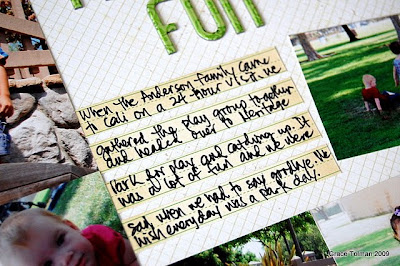 FUN
When the Anderson family came
to Cali on a 24 hour visit we
gathered the play group together
and headed over to Heritage
Park for play and catching up. It
was a lot of fun and we were
sad when we had to say goodbye. We
wish everyday was a park day.
©Grace Tolman 2009